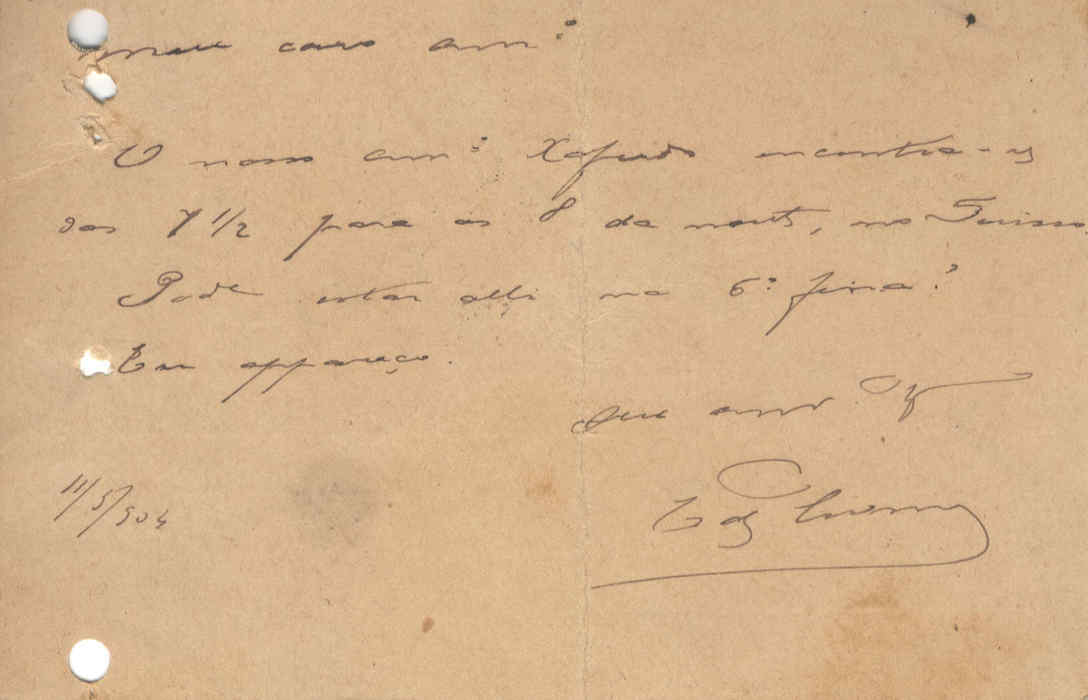 Meu caro am.º
O nosso am.º Xafredo encontra-se
das 7 1/2 para as 8 da noite, no Suisso.
Pode estar alli na 6.ª feira?
Eu appareço.
Seu am.º
11/5/904